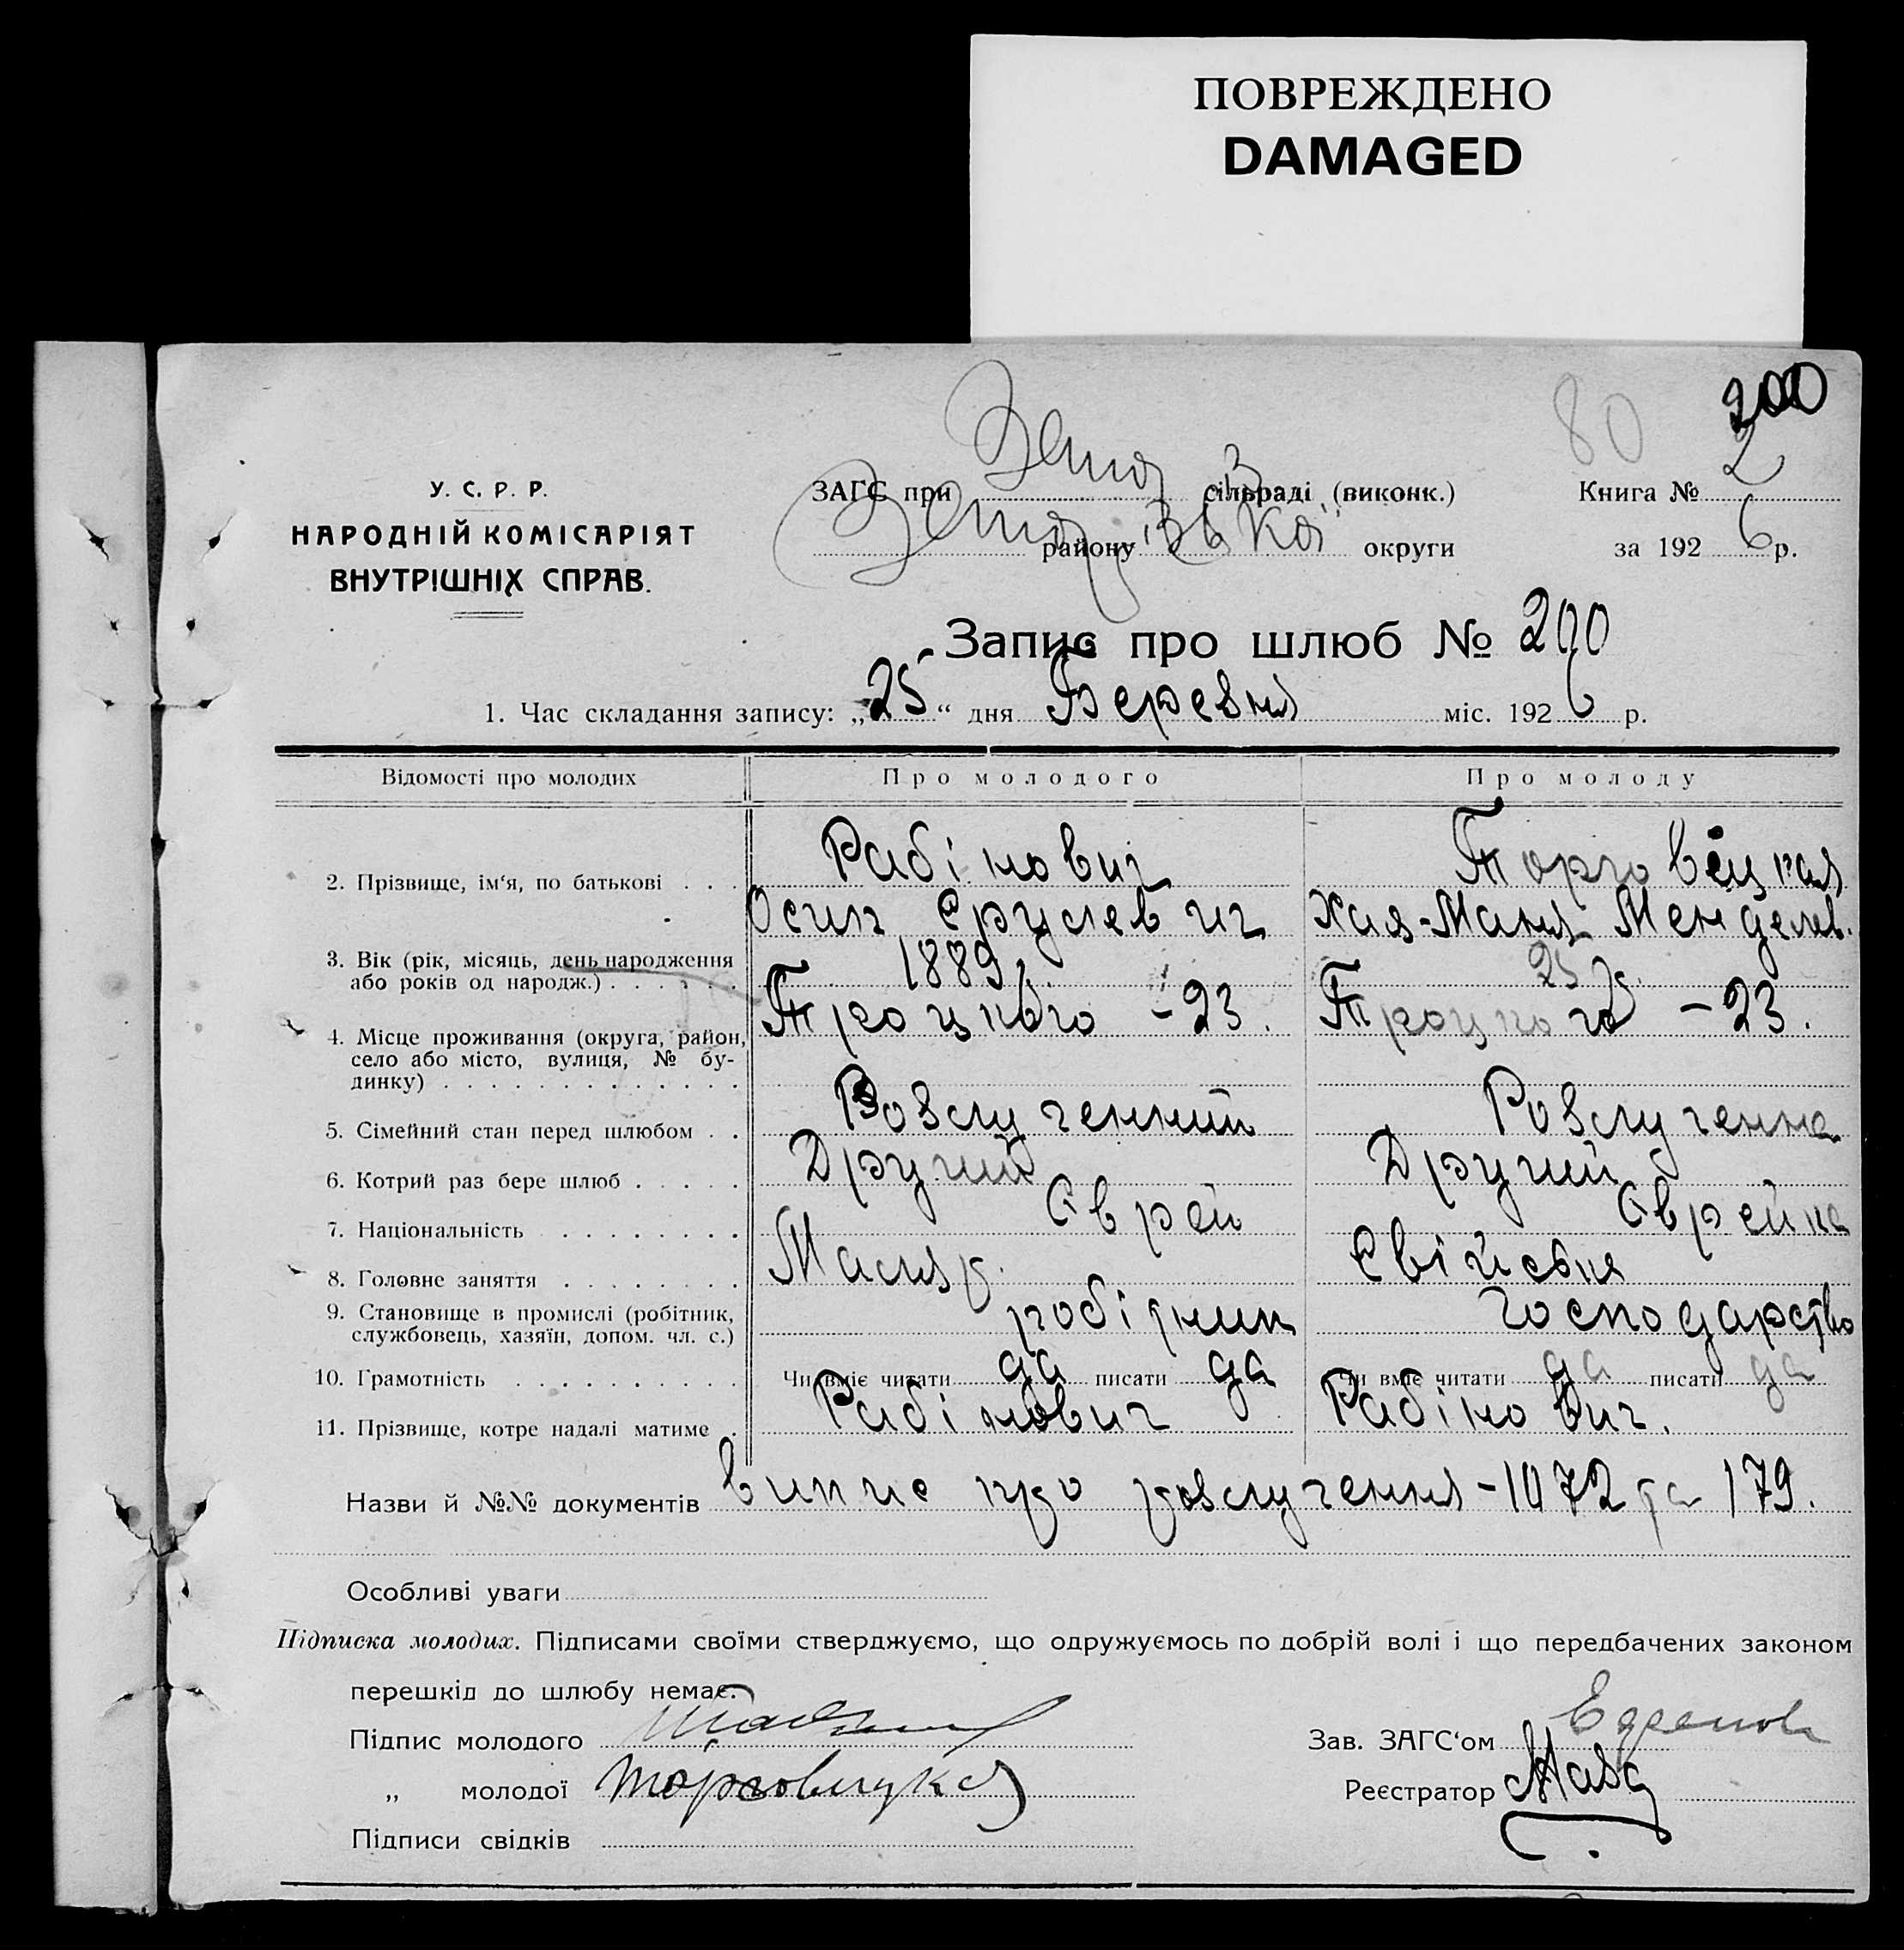 ПОВРЕЖДЕНО
DAMAGED
200
80
У. С. Р. Р.
НАРОДНІЙ КОМІСАРІЯТ
ВНУТРІШНІХ СПРАВ.
ЗАГС при сільраді (виконк.)
Книга № 2
району округи
за 1926 р.
Запис про шлюб № 200
1. Час складання запису: „25“ дня Березня міс. 1926 р.
Відомості про молодих Про молодого Про молоду
2. Прізвище, ім‘я, по батькові . . .
Рабінович
Осип Срулевич
Торговецкая
Хая-Маня Менделев.
3. Вік (рік, місяць, день народження
або років од народж.) . . . . . .
1889 25
4. Місце проживання (округа, район,
село або місто, вулиця, № бу-
динку) . . . . . . . . . . . . .
Троцкого - 23. Троцкого - 23.
5. Сімейний стан перед шлюбом . .
Розлучений Розлучена
6. Котрий раз бере шлюб . . . . .
Другий Другий
7. Національність . . . . . . . .
Єврей Єврейка
8. Головне заняття . . . . . . .
Маляр.
9. Становище в промислі (робітник,
службовець, хазяїн, допом. чл. с.)
робітник господарство
10. Грамотність . . . . . . . . . .
Чи вміє читати да писати да Чи вміє читати да писати да
11. Прізвище, котре надалі матиме .
Рабінович Рабінович.
Назви й №№ документів випис про розлучення - 1072 та 179.
Особливі уваги
Підписка молодих. Підписами своїми стверджуємо, що одружуємось по добрій волі і що передбачених законом
перешкід до шлюбу немає.
Підпис молодого
Зав. ЗАГС‘ом
„ молодої
Реєстратор
Підписи свідків